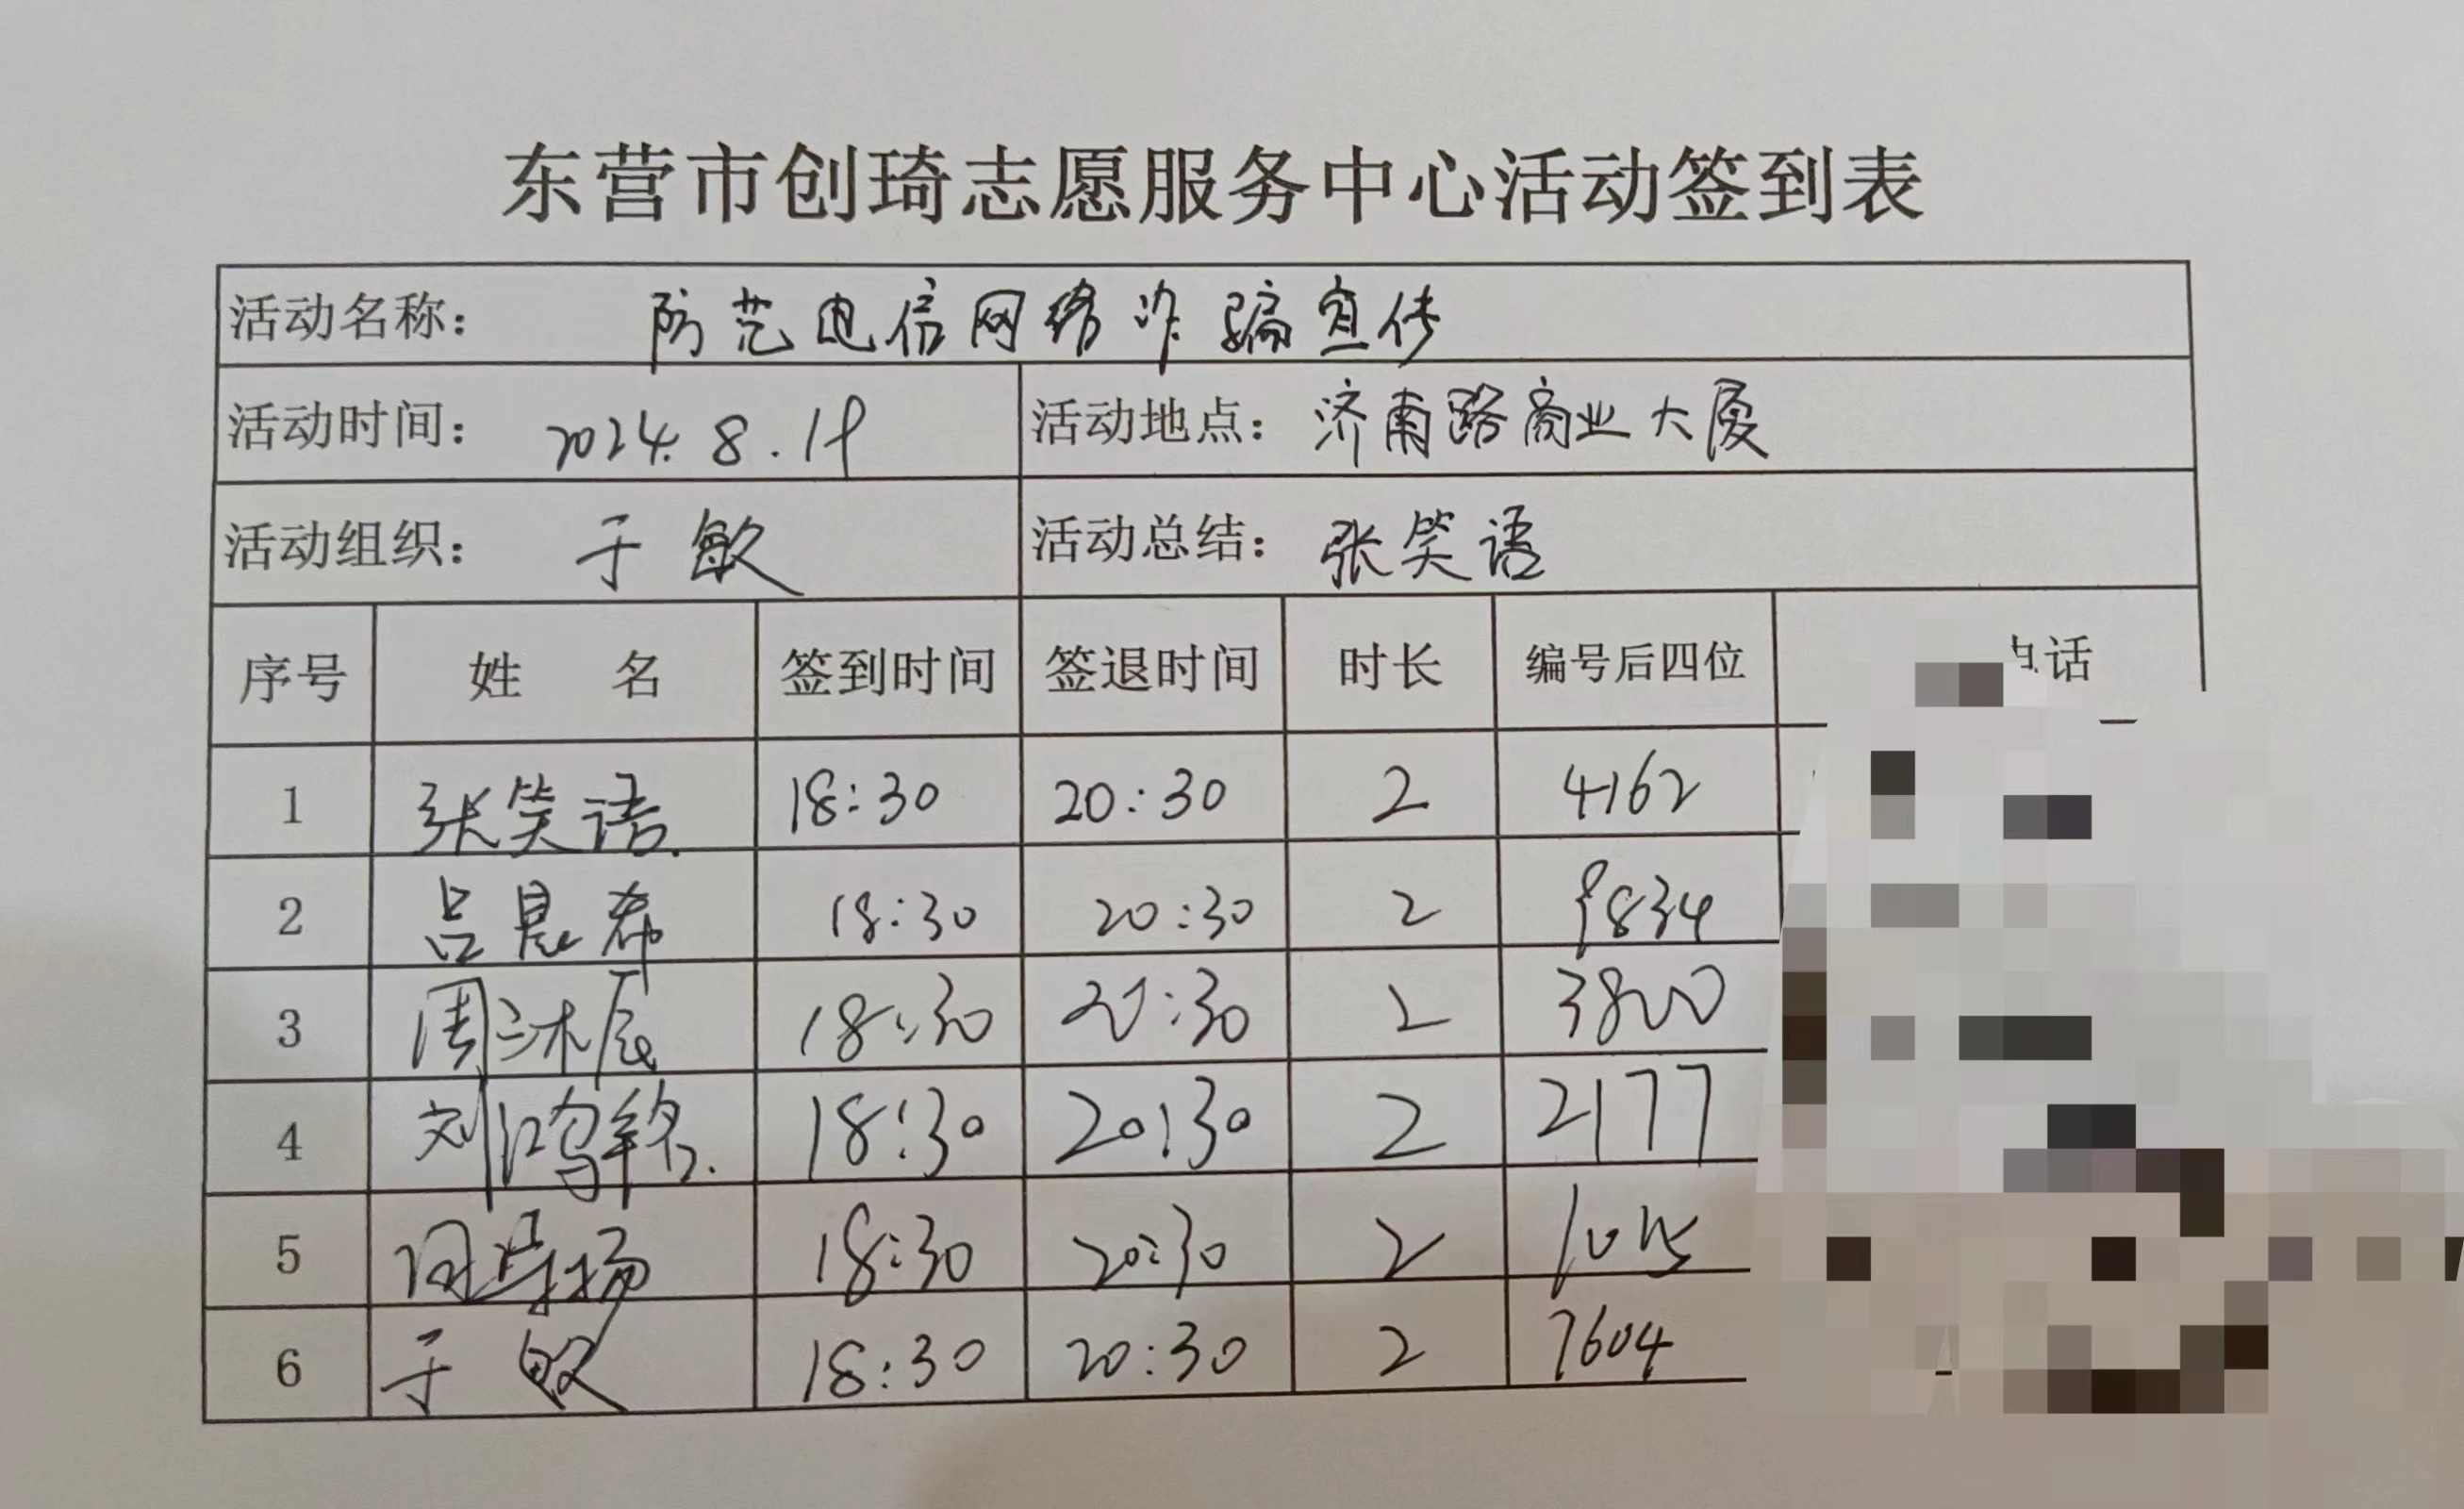 东营市创琦志愿服务中心活动签到表
活动名称： 防范电信网络诈骗宣传
活动时间： 2024.8.19 活动地点： 济南路商业大厦
活动组织： 于敏 活动总结： 张笑语
序号 姓 名 签到时间 签退时间 时长 编号后四位 电话
1 张笑语. 18:30 20:30 2 4162
2 吕晨希 18:30 20:30 2 9834
3 周沐辰 18:30 20:30 2 3800
4 刘鸿铭. 18:30 20:30 2 2177
5 18:30 20:30 2
6 于敏 18:30 20:30 2 7604